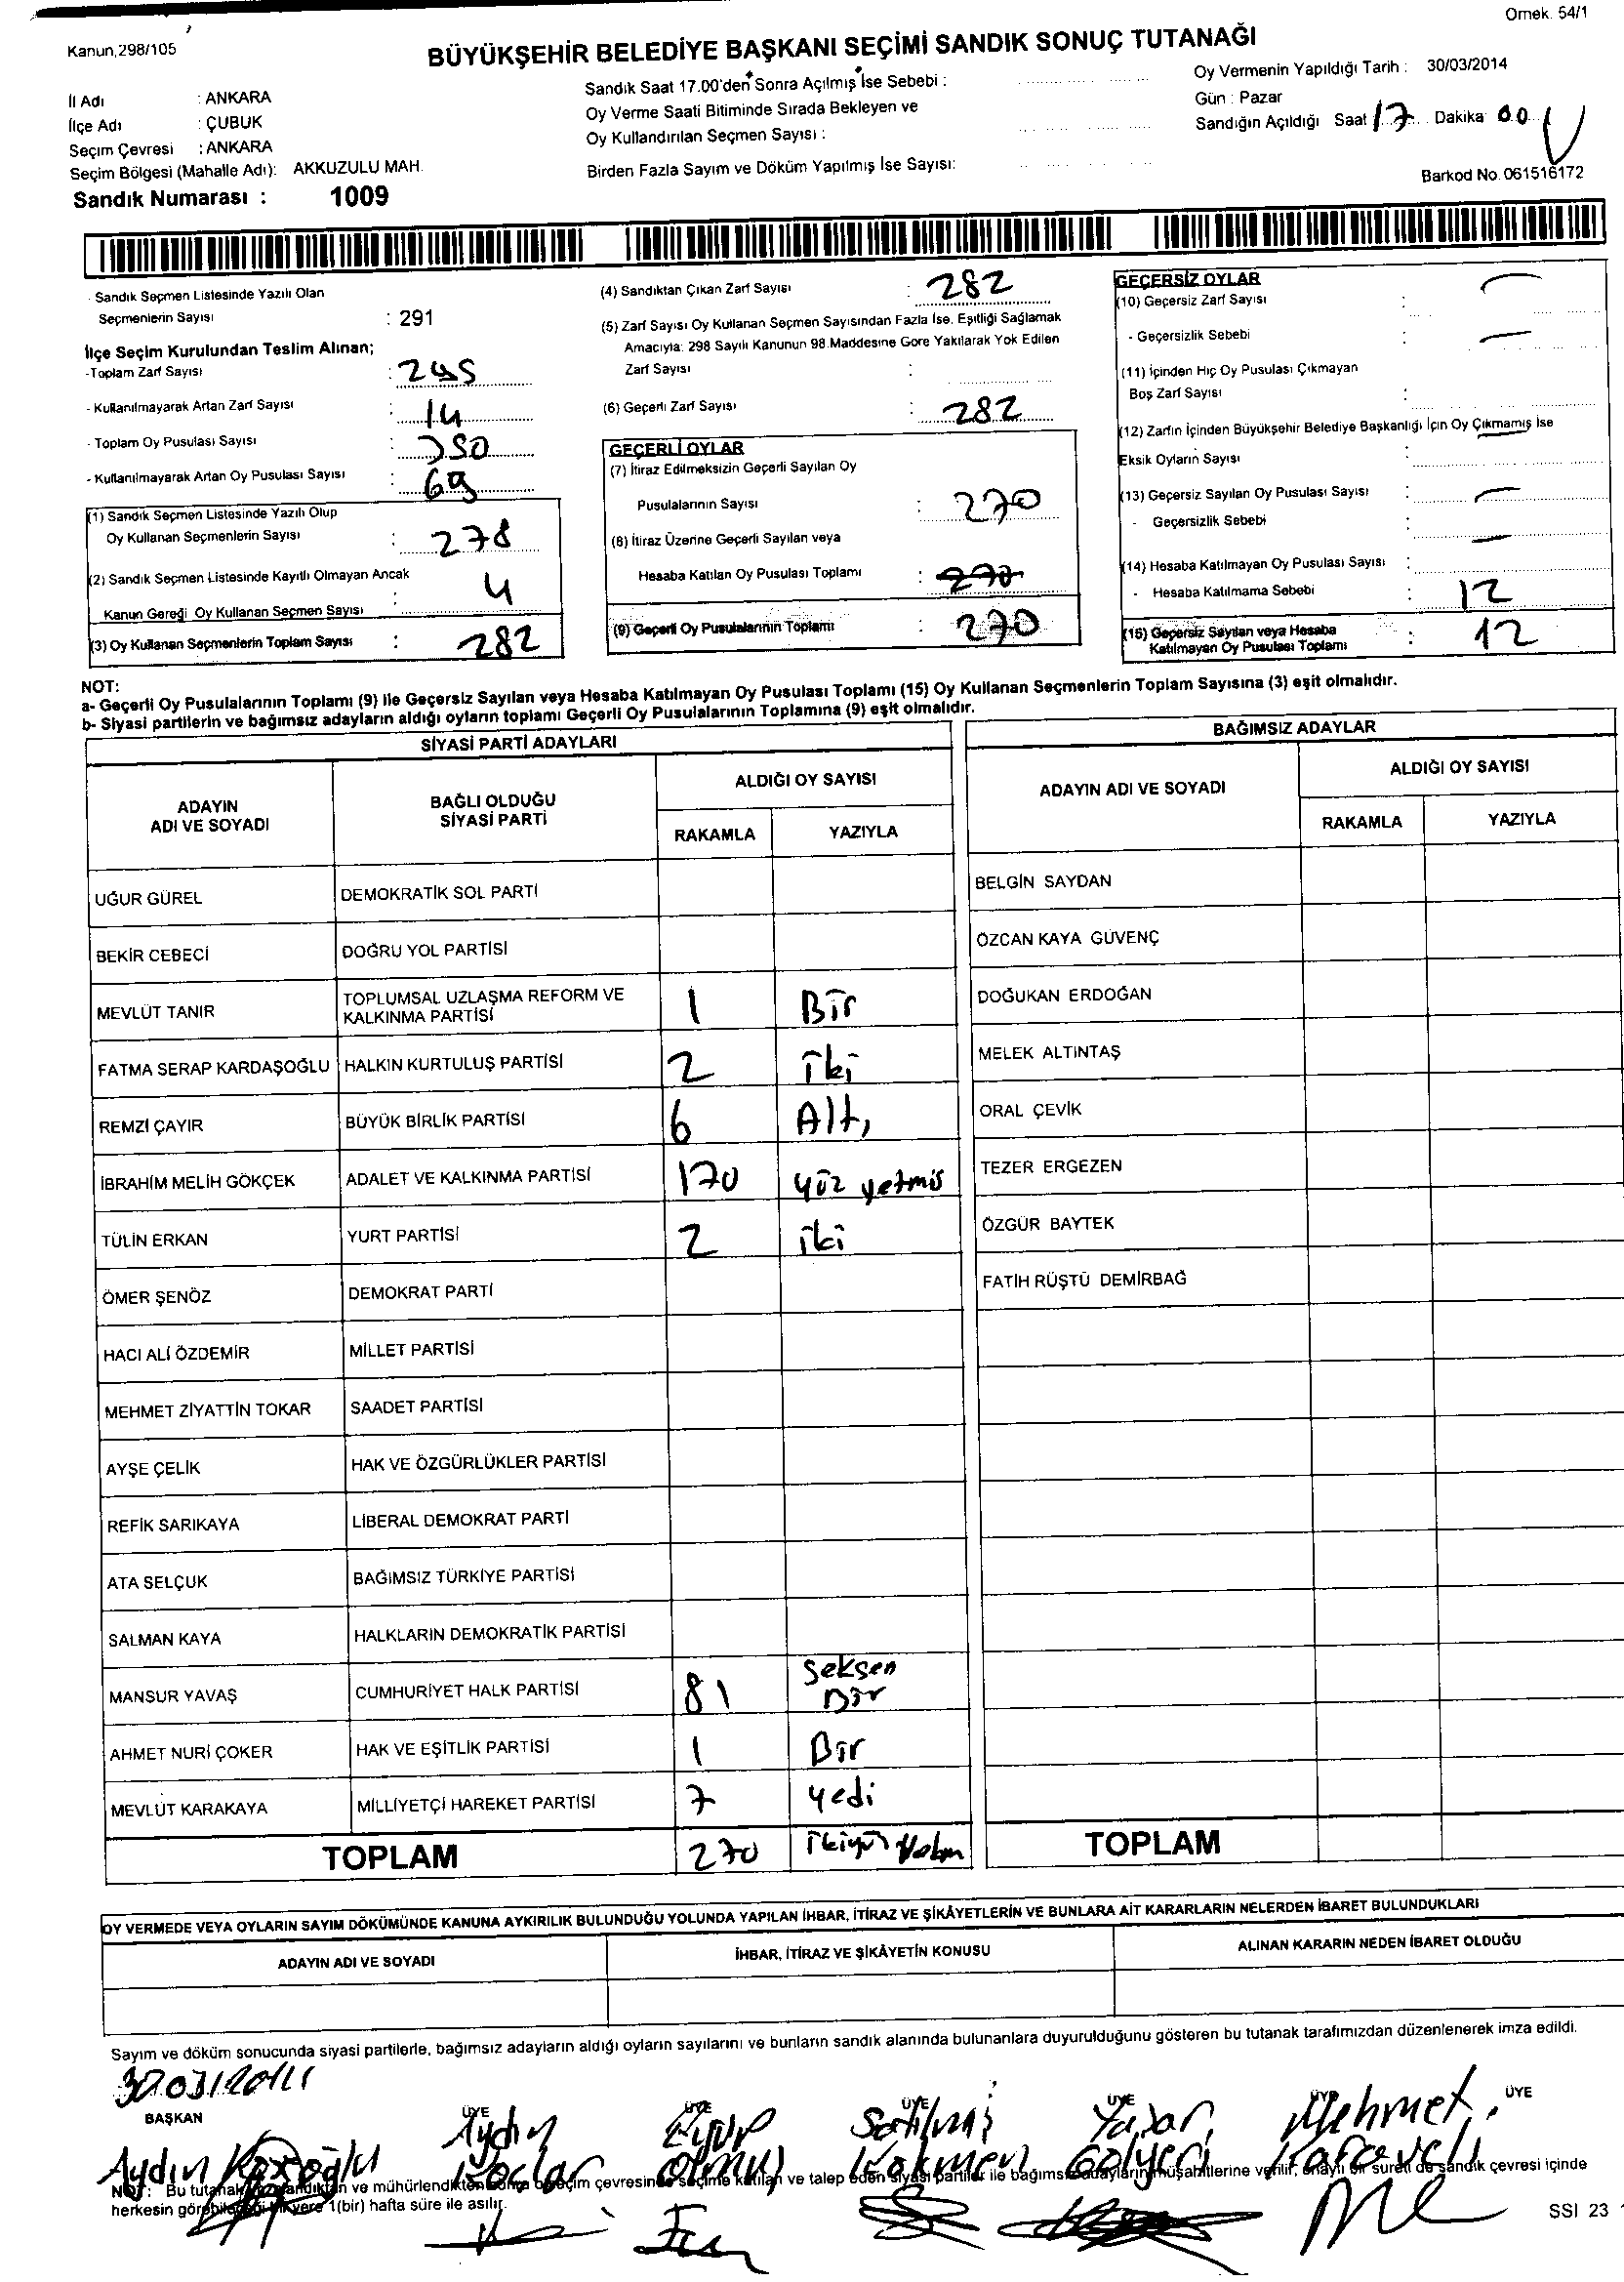 Örnek. 54/1
Kanun,298/105
BÜYÜKŞEHİR BELEDİYE BAŞKANI SEÇİMİ SANDIK SONUÇ TUTANAĞI
İl Adı : ANKARA
İlçe Adı : ÇUBUK
Seçim Çevresi : ANKARA
Seçim Bölgesi (Mahalle Adı): AKKUZULU MAH.
Sandık Numarası : 1009
Sandık Saat 17.00'den Sonra Açılmış İse Sebebi :
Oy Verme Saati Bitiminde Sırada Bekleyen ve
Oy Kullandırılan Seçmen Sayısı :
Birden Fazla Sayım ve Döküm Yapılmış İse Sayısı:
Oy Vermenin Yapıldığı Tarih : 30/03/2014
Gün : Pazar
Sandığın Açıldığı Saat 17 Dakika 00
Barkod No.061516172
- Sandık Seçmen Listesinde Yazılı Olan
Seçmenlerin Sayısı : 291
İlçe Seçim Kurulundan Teslim Alınan;
-Toplam Zarf Sayısı : 295
- Kullanılmayarak Artan Zarf Sayısı : 14
- Toplam Oy Pusulası Sayısı : 350
- Kullanılmayarak Artan Oy Pusulası Sayısı : 69
(1) Sandık Seçmen Listesinde Yazılı Olup
Oy Kullanan Seçmenlerin Sayısı : 278
(2) Sandık Seçmen Listesinde Kayıtlı Olmayan Ancak
Kanun Gereği Oy Kullanan Seçmen Sayısı : 4
(3) Oy Kullanan Seçmenlerin Toplam Sayısı : 282
(4) Sandıktan Çıkan Zarf Sayısı : 282
(5) Zarf Sayısı Oy Kullanan Seçmen Sayısından Fazla İse, Eşitliği Sağlamak
Amacıyla: 298 Sayılı Kanunun 98.Maddesine Göre Yakılarak Yok Edilen
Zarf Sayısı :
(6) Geçerli Zarf Sayısı : 282
GEÇERLİ OYLAR
(7) İtiraz Edilmeksizin Geçerli Sayılan Oy
Pusulalarının Sayısı : 270
(8) İtiraz Üzerine Geçerli Sayılan veya
Hesaba Katılan Oy Pusulası Toplamı : 270
(9) Geçerli Oy Pusulalarının Toplamı : 270
GEÇERSİZ OYLAR
(10) Geçersiz Zarf Sayısı : —
- Geçersizlik Sebebi : —
(11) İçinden Hiç Oy Pusulası Çıkmayan
Boş Zarf Sayısı :
(12) Zarfın İçinden Büyükşehir Belediye Başkanlığı İçin Oy Çıkmamış İse
Eksik Oyların Sayısı :
(13) Geçersiz Sayılan Oy Pusulası Sayısı : —
- Geçersizlik Sebebi : —
(14) Hesaba Katılmayan Oy Pusulası Sayısı :
- Hesaba Katılmama Sebebi : 12
(15) Geçersiz Sayılan veya Hesaba
Katılmayan Oy Pusulası Toplamı : 12
NOT:
a- Geçerli Oy Pusulalarının Toplamı (9) ile Geçersiz Sayılan veya Hesaba Katılmayan Oy Pusulası Toplamı (15) Oy Kullanan Seçmenlerin Toplam Sayısına (3) eşit olmalıdır.
b- Siyasi partilerin ve bağımsız adayların aldığı oyların toplamı Geçerli Oy Pusulalarının Toplamına (9) eşit olmalıdır.
SİYASİ PARTİ ADAYLARI
ADAYIN ADI VE SOYADI
BAĞLI OLDUĞU SİYASİ PARTİ
ALDIĞI OY SAYISI
RAKAMLA YAZIYLA
UĞUR GÜREL DEMOKRATİK SOL PARTİ
BEKİR CEBECİ DOĞRU YOL PARTİSİ
MEVLÜT TANIR TOPLUMSAL UZLAŞMA REFORM VE KALKINMA PARTİSİ 1 Bir
FATMA SERAP KARDAŞOĞLU HALKIN KURTULUŞ PARTİSİ 2 iki
REMZİ ÇAYIR BÜYÜK BİRLİK PARTİSİ 6 Altı
İBRAHİM MELİH GÖKÇEK ADALET VE KALKINMA PARTİSİ 170 yüz yetmiş
TÜLİN ERKAN YURT PARTİSİ 2 iki
ÖMER ŞENÖZ DEMOKRAT PARTİ
HACI ALİ ÖZDEMİR MİLLET PARTİSİ
MEHMET ZİYATTİN TOKAR SAADET PARTİSİ
AYŞE ÇELİK HAK VE ÖZGÜRLÜKLER PARTİSİ
REFİK SARIKAYA LİBERAL DEMOKRAT PARTİ
ATA SELÇUK BAĞIMSIZ TÜRKİYE PARTİSİ
SALMAN KAYA HALKLARIN DEMOKRATİK PARTİSİ
MANSUR YAVAŞ CUMHURİYET HALK PARTİSİ 81 Seksen Bir
AHMET NURİ ÇOKER HAK VE EŞİTLİK PARTİSİ 1 Bir
MEVLÜT KARAKAYA MİLLİYETÇİ HAREKET PARTİSİ 7 yedi
TOPLAM 270
BAĞIMSIZ ADAYLAR
ADAYIN ADI VE SOYADI
ALDIĞI OY SAYISI
RAKAMLA YAZIYLA
BELGİN SAYDAN
ÖZCAN KAYA GÜVENÇ
DOĞUKAN ERDOĞAN
MELEK ALTINTAŞ
ORAL ÇEVİK
TEZER ERGEZEN
ÖZGÜR BAYTEK
FATİH RÜŞTÜ DEMİRBAĞ
TOPLAM
OY VERMEDE VEYA OYLARIN SAYIM DÖKÜMÜNDE KANUNA AYKIRILIK BULUNDUĞU YOLUNDA YAPILAN İHBAR, İTİRAZ VE ŞİKÂYETLERİN VE BUNLARA AİT KARARLARIN NELERDEN İBARET BULUNDUKLARI
ADAYIN ADI VE SOYADI
İHBAR, İTİRAZ VE ŞİKÂYETİN KONUSU
ALINAN KARARIN NEDEN İBARET OLDUĞU
Sayım ve döküm sonucunda siyasi partilerle, bağımsız adayların aldığı oyların sayılarını ve bunların sandık alanında bulunanlara duyurulduğunu gösteren bu tutanak tarafımızdan düzenlenerek imza edildi.
BAŞKAN ÜYE ÜYE ÜYE ÜYE ÜYE ÜYE
Aydın Aydın Eyüp Satılmış Yaşar Mehmet
NOT: Bu tutanak ve mühürlendikten seçim çevresinde seçime katılan ve talep eden siyasi partiler ile bağımsız adayların müşahitlerine verilir, onaylı bir sureti de sandık çevresi içinde
herkesin görebileceği bir yere 1(bir) hafta süre ile asılır.
SSI 23